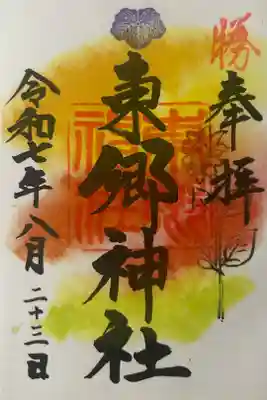 勝
奉拝
東郷神社
令和七年八月二十三日